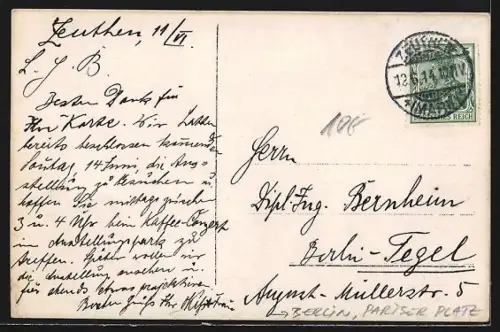 Zeuthen, 11/VI
L. J. B.
Besten Dank für
Ihre Karte. Wir hatten
bereits beschlossen kommenden
Sonntag, 14 Juni, die Aus-
stellung zu besuchen u.
hoffen Sie mittags zwischen
3 u. 4 Uhr beim Kaffee-Konzert
im Ausstellungspark zu
treffen. Später wollen wir
die Ausstellung ansehen u.
für abends etwas projektieren.
Besten Gruß Ihr
ZEUTHEN
12.6.14.
(MARK)
REICH
10E
Herrn
Dipl.-Ing. Bernheim
Berlin-Tegel
August-Müllerstr. 5
→ BERLIN, PARISER PLATZ